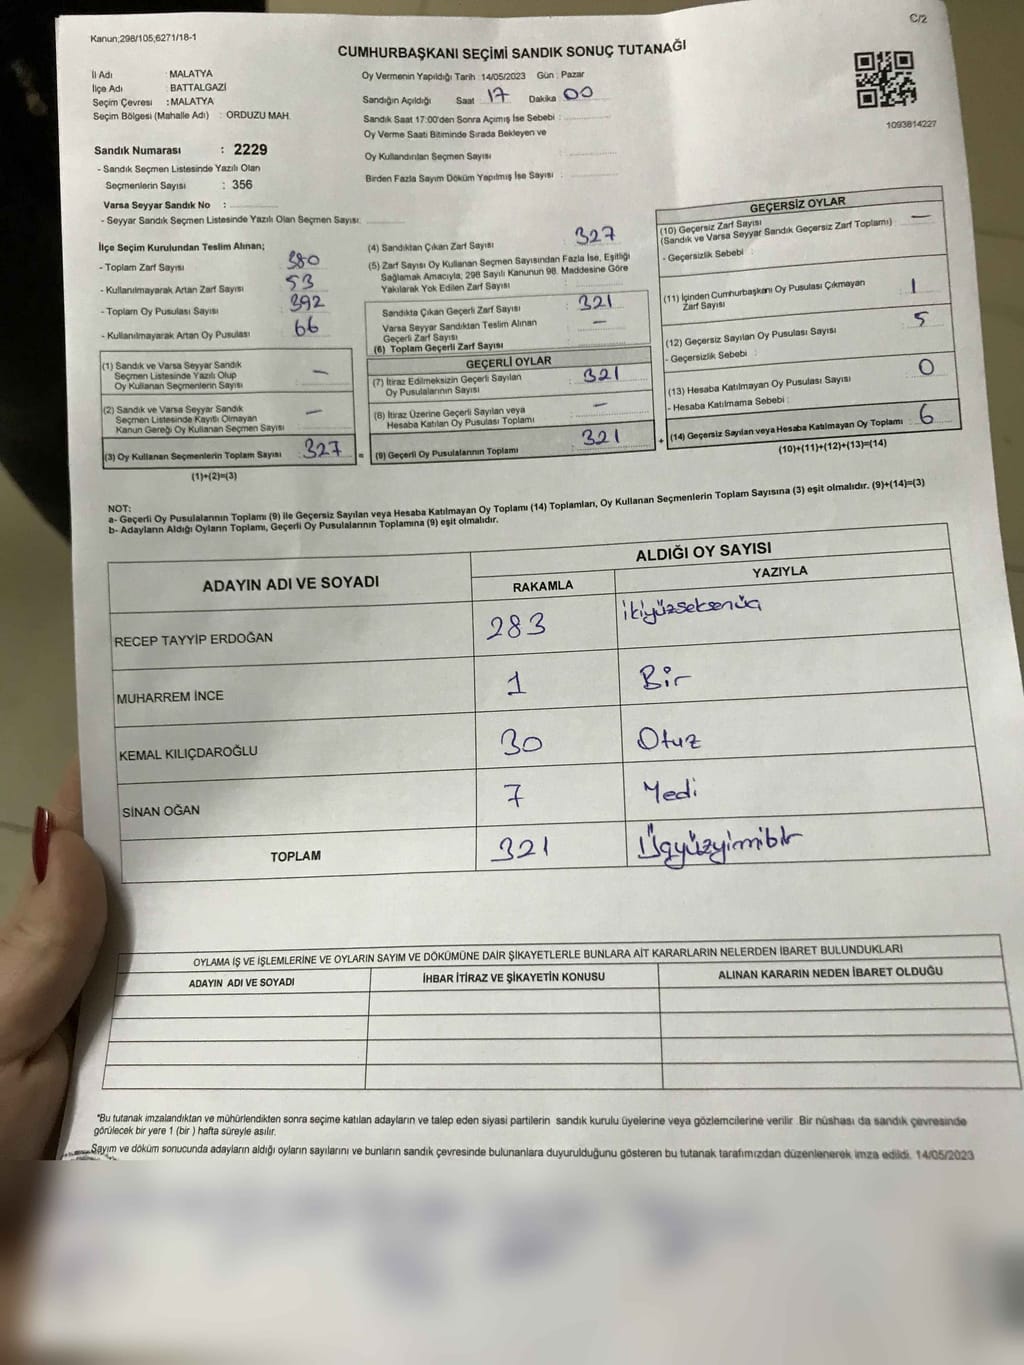 C/2
Kanun;298/105;6271/18-1
CUMHURBAŞKANI SEÇİMİ SANDIK SONUÇ TUTANAĞI
İl Adı : MALATYA
İlçe Adı : BATTALGAZİ
Seçim Çevresi : MALATYA
Seçim Bölgesi (Mahalle Adı) : ORDUZU MAH.
Sandık Numarası : 2229
- Sandık Seçmen Listesinde Yazılı Olan
Seçmenlerin Sayısı : 356
Varsa Seyyar Sandık No :
- Seyyar Sandık Seçmen Listesinde Yazılı Olan Seçmen Sayısı:
Oy Vermenin Yapıldığı Tarih : 14/05/2023 Gün : Pazar
Sandığın Açıldığı Saat 17 Dakika 00
Sandık Saat 17:00'den Sonra Açımış İse Sebebi :
Oy Verme Saati Bitiminde Sırada Bekleyen ve
Oy Kullandırılan Seçmen Sayısı :
Birden Fazla Sayım Döküm Yapılmış İse Sayısı :
1093814227
İlçe Seçim Kurulundan Teslim Alınan;
- Toplam Zarf Sayısı 380
- Kullanılmayarak Artan Zarf Sayısı 53
- Toplam Oy Pusulası Sayısı 392
- Kullanılmayarak Artan Oy Pusulası 66
(1) Sandık ve Varsa Seyyar Sandık
Seçmen Listesinde Yazılı Olup
Oy Kullanan Seçmenlerin Sayısı : —
(2) Sandık ve Varsa Seyyar Sandık
Seçmen Listesinde Kayıtlı Olmayan
Kanun Gereği Oy Kullanan Seçmen Sayısı : —
(3) Oy Kullanan Seçmenlerin Toplam Sayısı : 327 =
(1)+(2)=(3)
(4) Sandıktan Çıkan Zarf Sayısı : 327
(5) Zarf Sayısı Oy Kullanan Seçmen Sayısından Fazla İse, Eşitliği
Sağlamak Amacıyla, 298 Sayılı Kanunun 98. Maddesine Göre
Yakılarak Yok Edilen Zarf Sayısı :
Sandıkta Çıkan Geçerli Zarf Sayısı : 321
Varsa Seyyar Sandıktan Teslim Alınan
Geçerli Zarf Sayısı : —
(6) Toplam Geçerli Zarf Sayısı
GEÇERLİ OYLAR
(7) İtiraz Edilmeksizin Geçerli Sayılan
Oy Pusulalarının Sayısı : 321
(8) İtiraz Üzerine Geçerli Sayılan veya
Hesaba Katılan Oy Pusulası Toplamı : —
(9) Geçerli Oy Pusulalarının Toplamı : 321 +
GEÇERSİZ OYLAR
(10) Geçersiz Zarf Sayısı
(Sandık ve Varsa Seyyar Sandık Geçersiz Zarf Toplamı) : —
- Geçersizlik Sebebi :
(11) İçinden Cumhurbaşkanı Oy Pusulası Çıkmayan
Zarf Sayısı : 1
(12) Geçersiz Sayılan Oy Pusulası Sayısı : 5
- Geçersizlik Sebebi :
(13) Hesaba Katılmayan Oy Pusulası Sayısı : 0
- Hesaba Katılmama Sebebi :
(14) Geçersiz Sayılan veya Hesaba Katılmayan Oy Toplamı : 6
(10)+(11)+(12)+(13)=(14)
NOT:
a- Geçerli Oy Pusulalarının Toplamı (9) ile Geçersiz Sayılan veya Hesaba Katılmayan Oy Toplamı (14) Toplamları, Oy Kullanan Seçmenlerin Toplam Sayısına (3) eşit olmalıdır. (9)+(14)=(3)
b- Adayların Aldığı Oyların Toplamı, Geçerli Oy Pusulalarının Toplamına (9) eşit olmalıdır.
ADAYIN ADI VE SOYADI
ALDIĞI OY SAYISI
RAKAMLA YAZIYLA
RECEP TAYYİP ERDOĞAN 283 ikiyüzseksenüç
MUHARREM İNCE 1 Bir
KEMAL KILIÇDAROĞLU 30 Otuz
SİNAN OĞAN 7 Yedi
TOPLAM 321 Üçyüzyimibir
OYLAMA İŞ VE İŞLEMLERİNE VE OYLARIN SAYIM VE DÖKÜMÜNE DAİR ŞİKAYETLERLE BUNLARA AİT KARARLARIN NELERDEN İBARET BULUNDUKLARI
ADAYIN ADI VE SOYADI İHBAR İTİRAZ VE ŞİKAYETİN KONUSU ALINAN KARARIN NEDEN İBARET OLDUĞU
*Bu tutanak imzalandıktan ve mühürlendikten sonra seçime katılan adayların ve talep eden siyasi partilerin sandık kurulu üyelerine veya gözlemcilerine verilir. Bir nüshası da sandık çevresinde
görülecek bir yere 1 (bir ) hafta süreyle asılır.
Sayım ve döküm sonucunda adayların aldığı oyların sayılarını ve bunların sandık çevresinde bulunanlara duyurulduğunu gösteren bu tutanak tarafımızdan düzenlenerek imza edildi. 14/05/2023